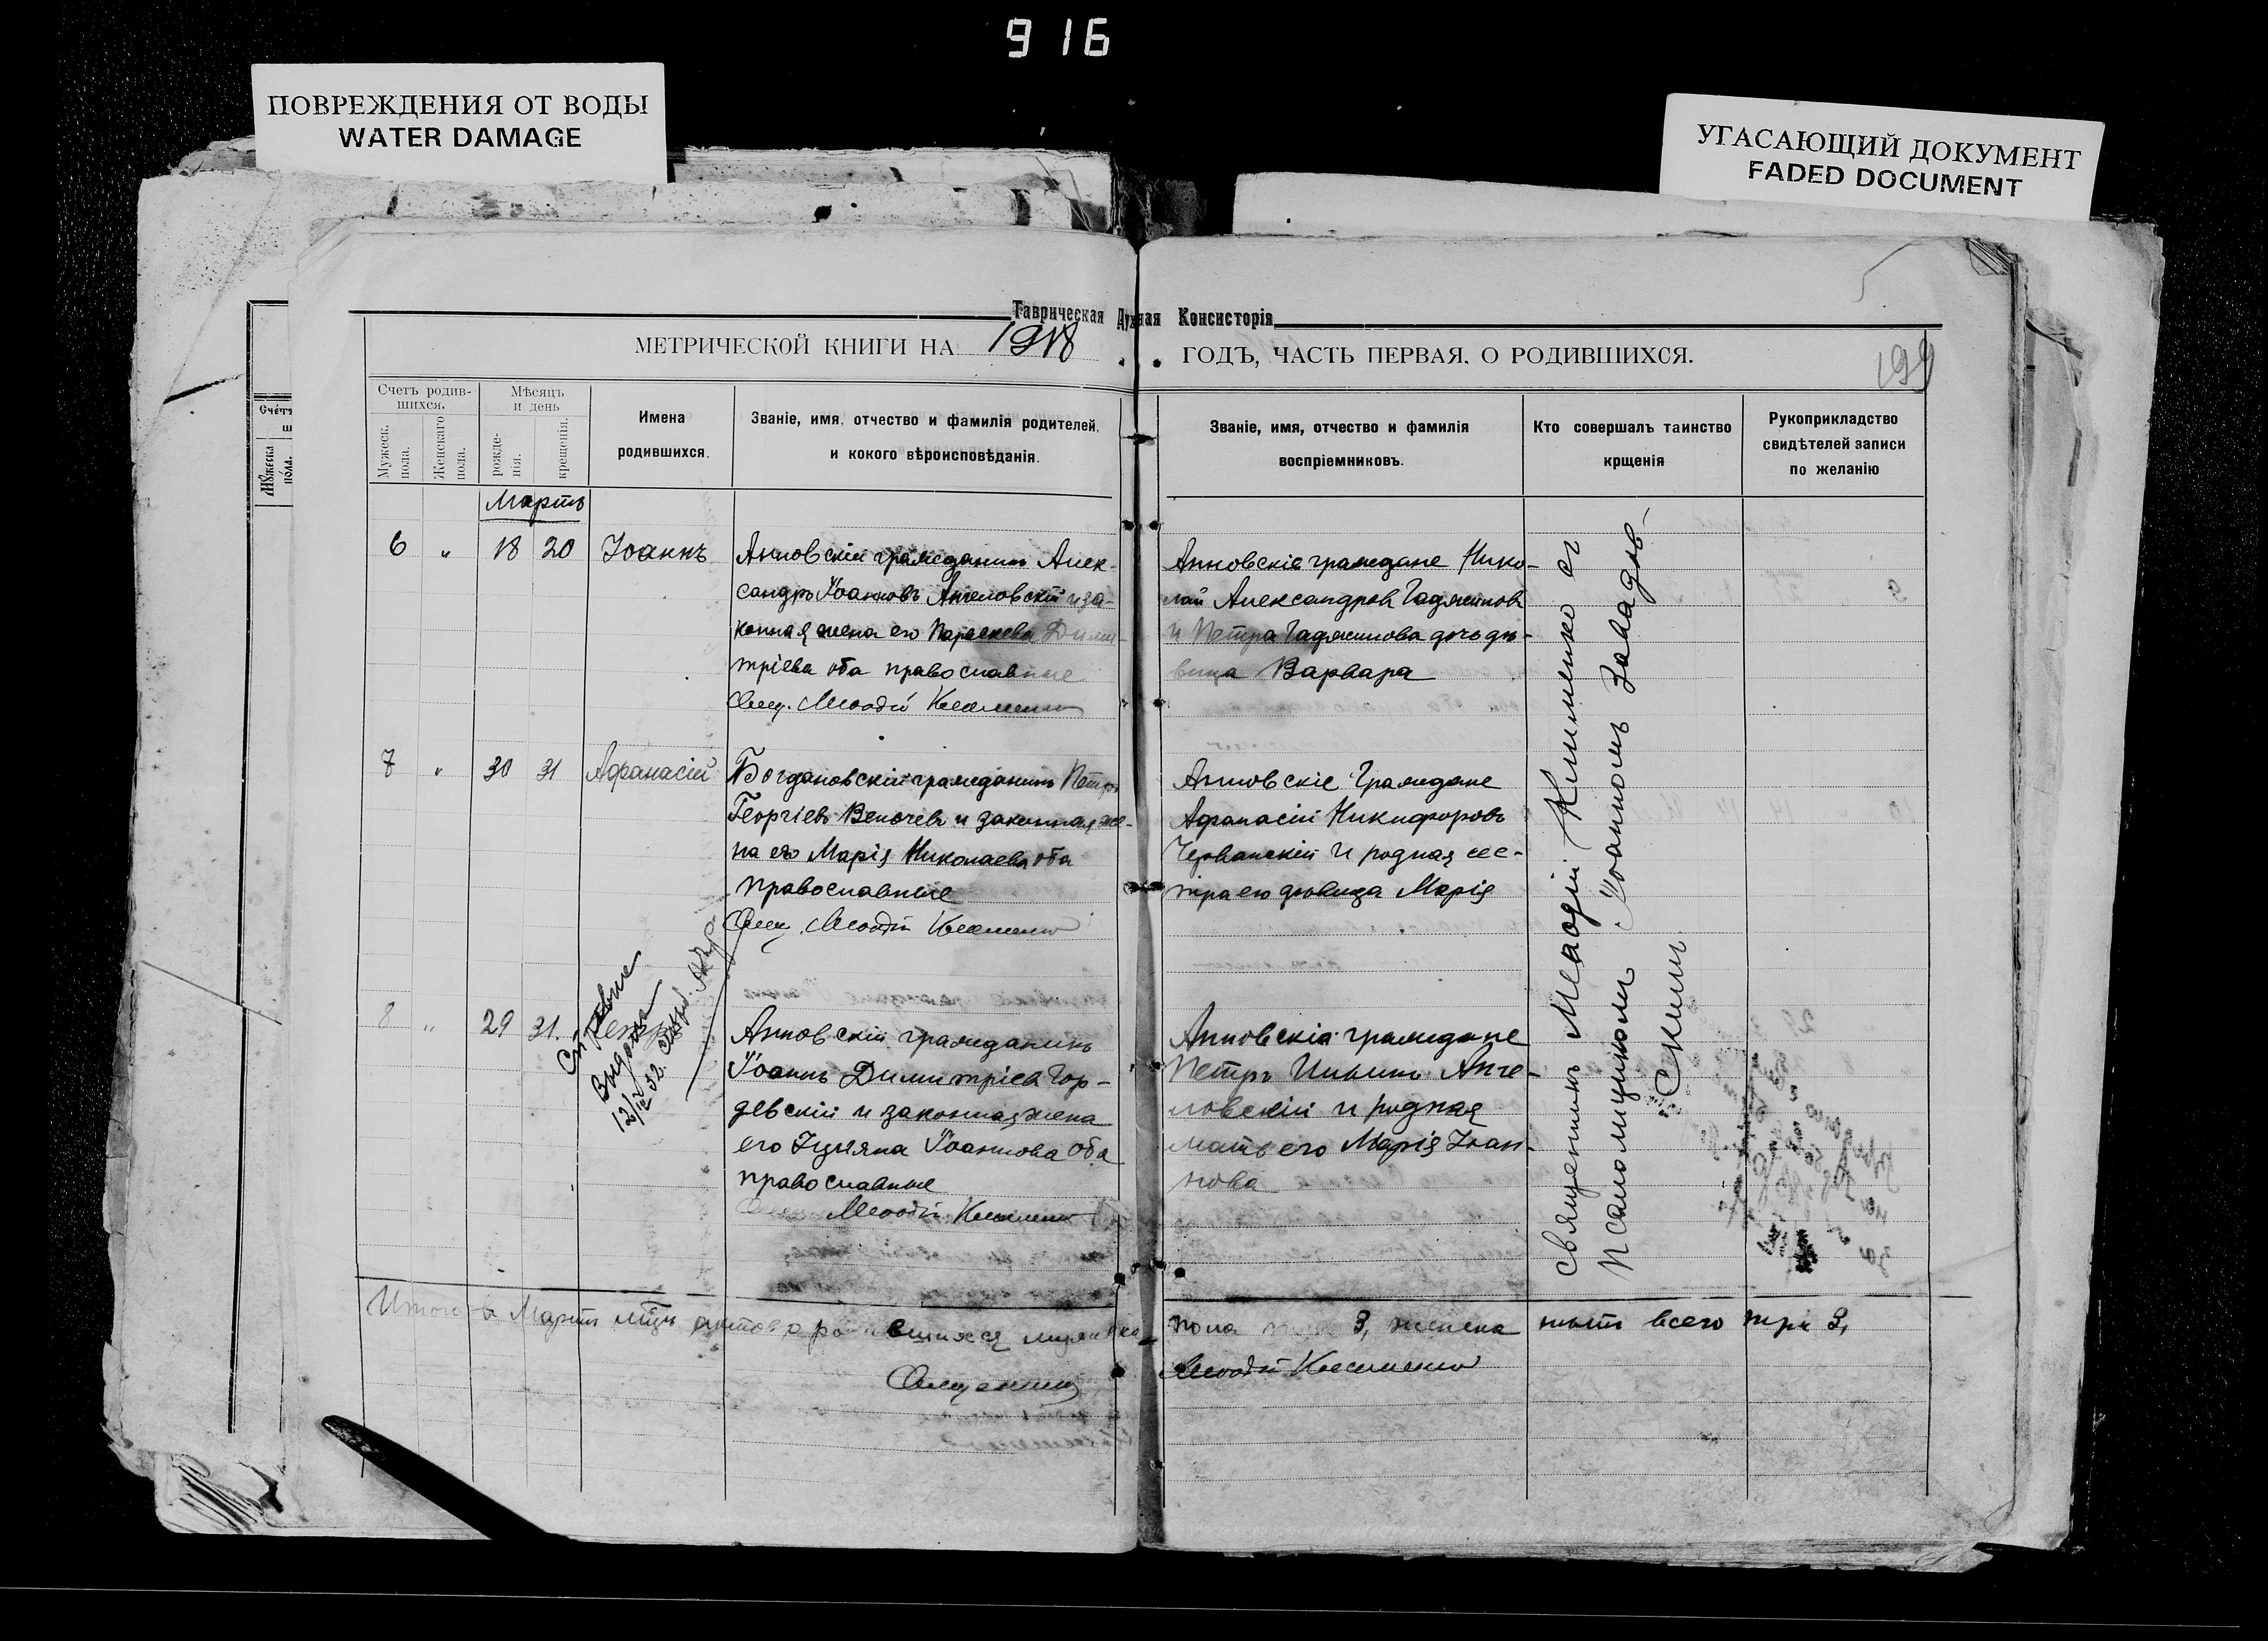 916
ПОВРЕЖДЕНИЯ ОТ ВОДЫ
WATER DAMAGE
УГАСАЮЩИЙ ДОКУМЕНТ
FADED DOCUMENT
Таврическая Духная Консисторія
МЕТРИЧЕСКОЙ КНИГИ НА 1918 ГОДЪ, ЧАСТЬ ПЕРВАЯ, О РОДИВШИХСЯ.
199
Счетъ родив-
шихся.
Мужеск.
пола.
Женскаго
пола.
Мѣсяцъ
и день
рожде-
нія.
крещенія.
Имена
родившихся.
Званіе, имя, отчество и фамилія родителей,
и кокого вѣроисповѣданія.
Званіе, имя, отчество и фамилія
воспріемниковъ.
Кто совершалъ таинство
крщенія
Рукоприкладство
свидѣтелей записи
по желанію
Мартъ
6 " 18 20 Іоаннъ
Анновскій гражданинъ Алек-
сандръ Іоанновъ Ангеловскій и за-
конная жена его Параскева Дими-
тріева оба православные
Свящ. Меѳодій Клименко
Анновскіе граждане Нико-
лай Александровъ Гаджиновъ
и Петра Гаджинова дочь дѣ-
вица Варвара
7 " 30 31 Афанасій
Богдановскій гражданинъ Петръ
Георгіевъ Веночевъ и законная же-
на его Марія Николаева оба
православные
Свящ. Меѳодій Клименко
Анновскіе Граждане
Афанасій Никифоровъ
Червенскій и родная сес-
тра его дѣвица Марія
8 " 29 31. Петръ
Выдана
12/IV 32.
Анновскій гражданинъ
Іоаннъ Димитріевъ Гор-
девскій и законная жена
его Іуліяна Іоаннова оба
православные
Меѳодій Клименко
Анновскіе граждане
Петръ Ильинъ Анге-
ловскій и родная
мать его Марія Іоан-
нова
Священникъ Меѳодій Клименко съ
псаломщикомъ Іоанномъ Завадов-
скимъ
Итого въ Мартѣ мцѣ актовъ о родившихся мужеска
пола три 3, женска нѣтъ всего три 3,
Священникъ Меѳодій Клименко